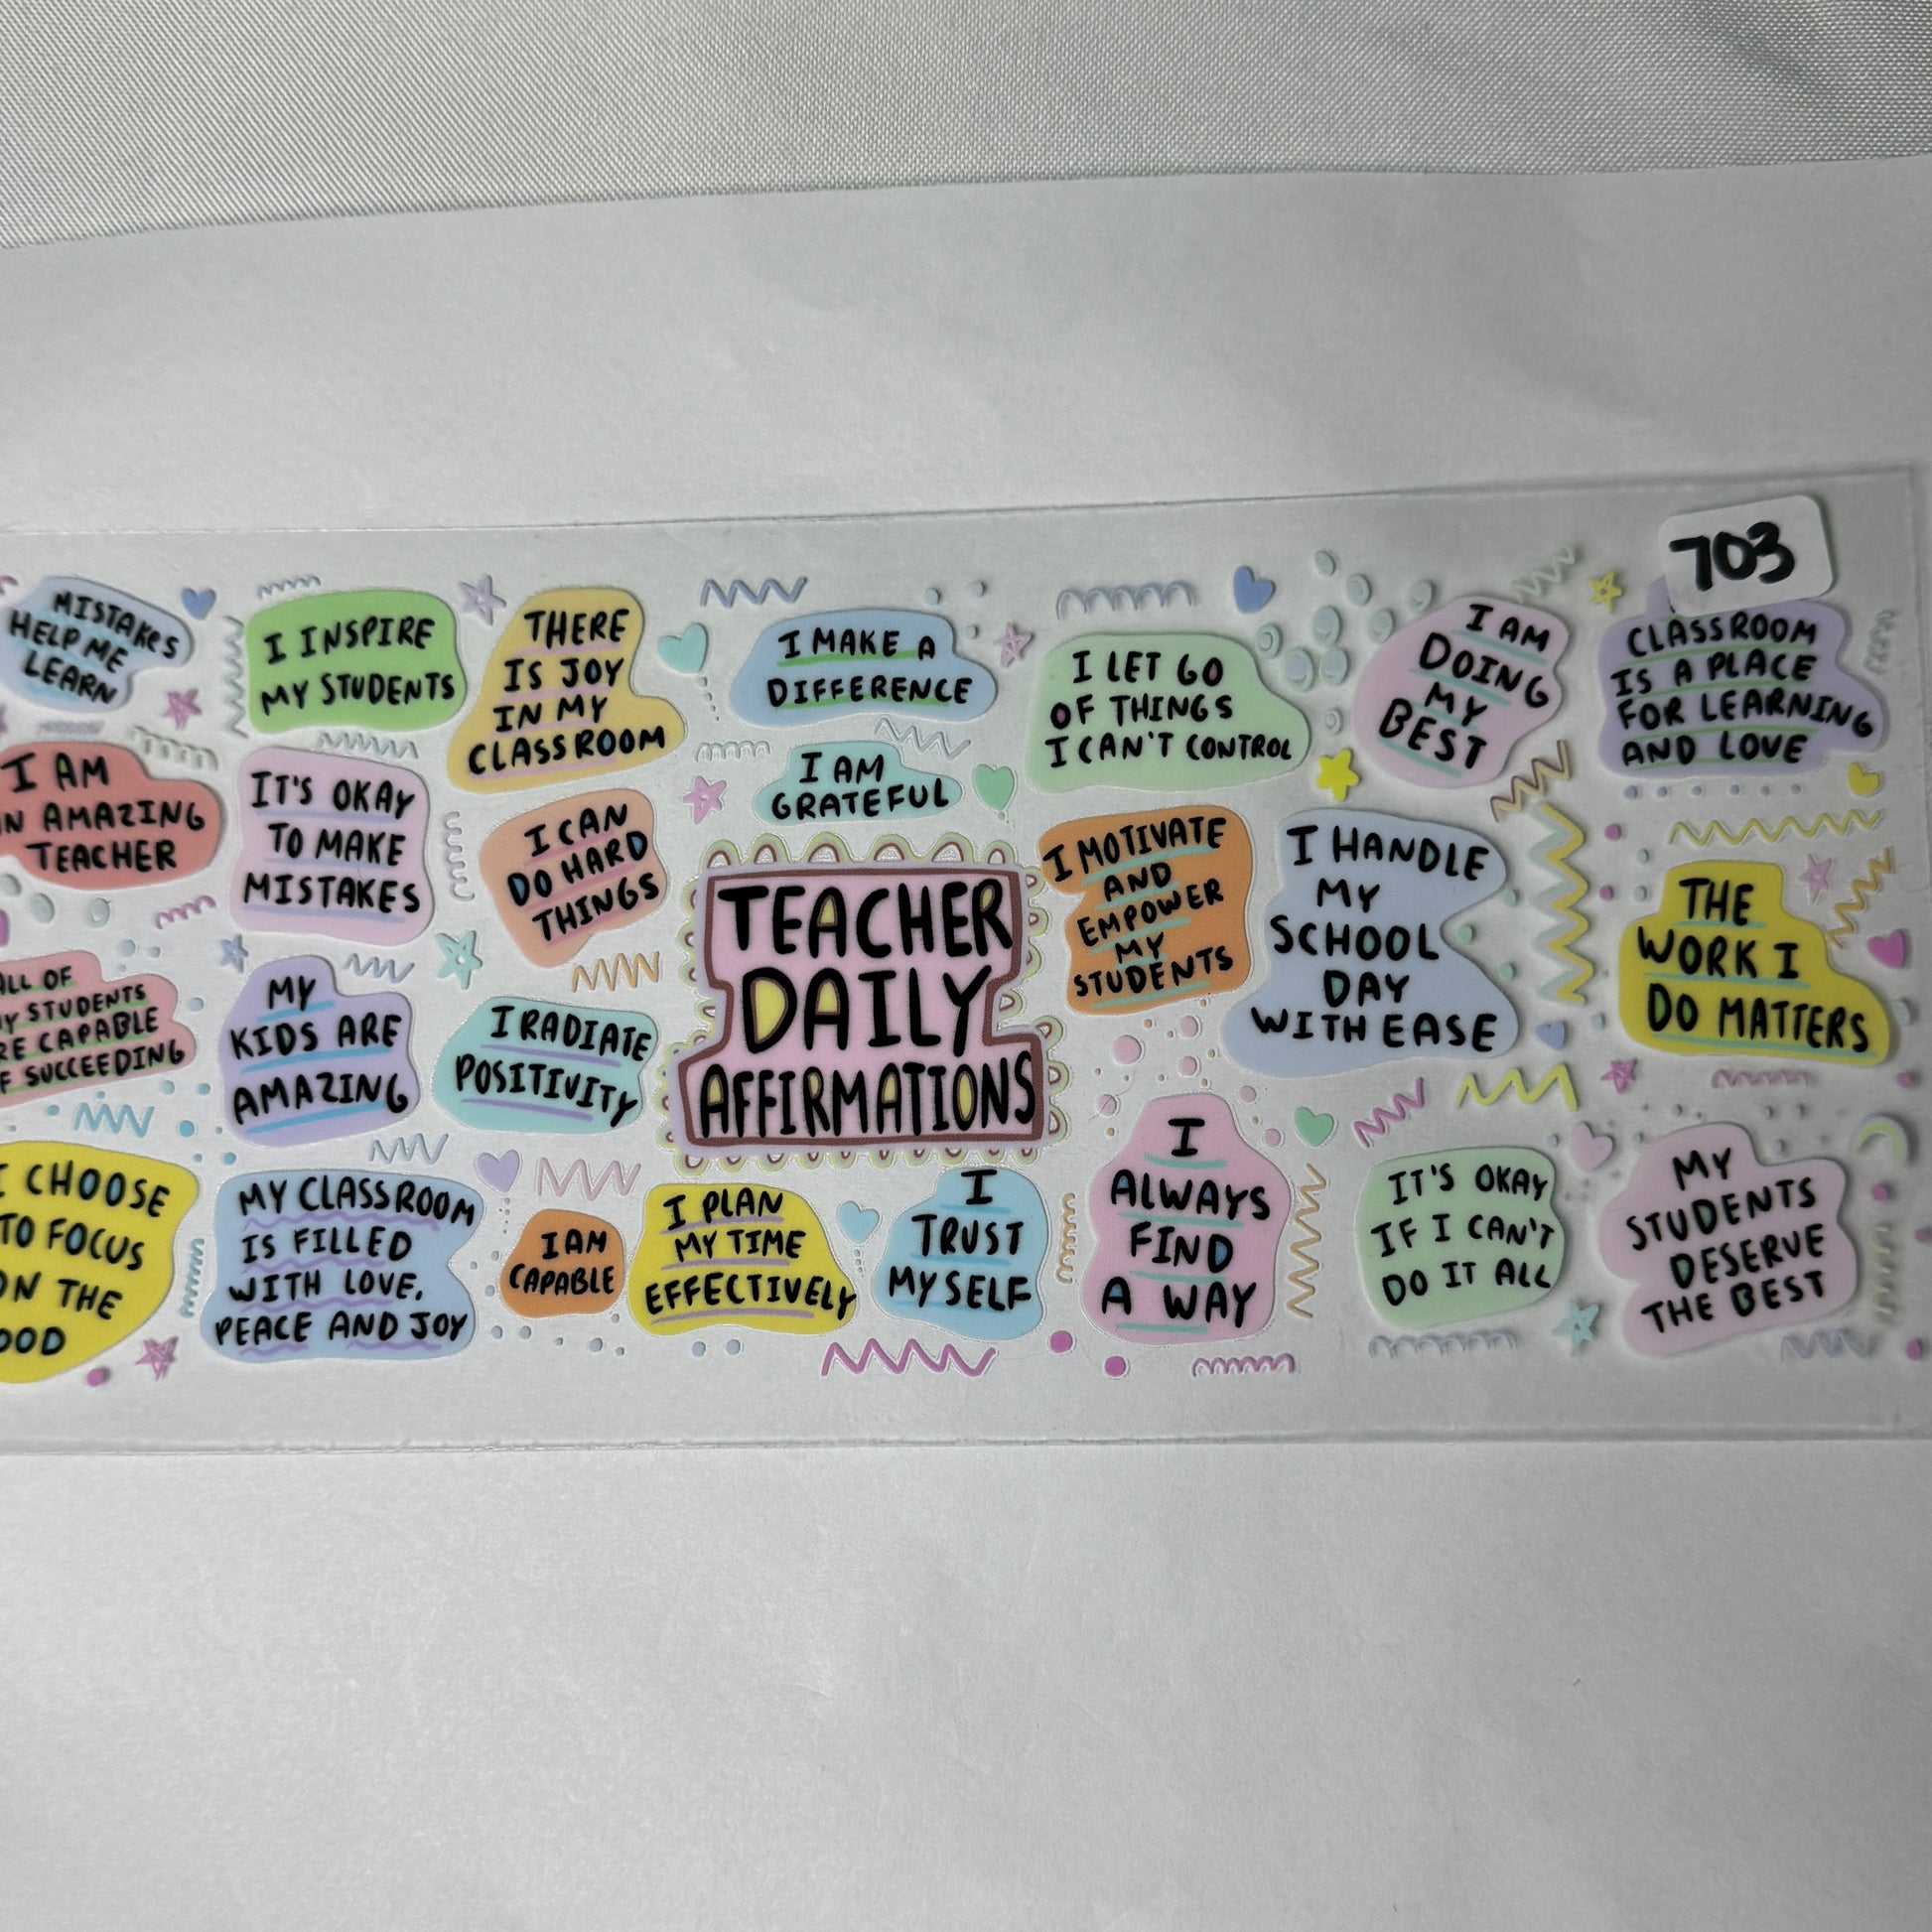 703
MISTAKES
HELP ME
LEARN
I INSPIRE
MY STUDENTS
THERE
IS JOY
IN MY
CLASSROOM
I MAKE A
DIFFERENCE
I LET GO
OF THINGS
I CAN'T CONTROL
I AM
DOING
MY
BEST
CLASSROOM
IS A PLACE
FOR LEARNING
AND LOVE
I AM
AMAZING
TEACHER
IT'S OKAY
TO MAKE
MISTAKES
I CAN
DO HARD
THINGS
I AM
GRATEFUL
TEACHER
DAILY
AFFIRMATIONS
I MOTIVATE
AND
EMPOWER
MY
STUDENTS
I HANDLE
MY
SCHOOL
DAY
WITH EASE
THE
WORK I
DO MATTERS
ALL OF
STUDENTS
CAPABLE
SUCCEEDING
MY
KIDS ARE
AMAZING
I RADIATE
POSITIVITY
I CHOOSE
TO FOCUS
ON THE
MY CLASSROOM
IS FILLED
WITH LOVE,
PEACE AND JOY
I AM
CAPABLE
I PLAN
MY TIME
EFFECTIVELY
I
TRUST
MYSELF
I
ALWAYS
FIND
A WAY
IT'S OKAY
IF I CAN'T
DO IT ALL
MY
STUDENTS
DESERVE
THE BEST